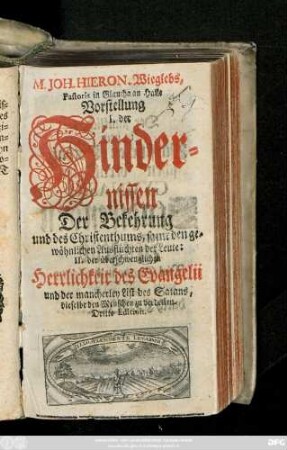 M. JOH. HIERON. Wieglebs,
Pastoris in Glaucha an Halle
Vorstellung
I. der
Hinder-
nissen
Der Bekehrung
und des Christenthums, samt den ge-
wöhnlichen Ausflüchten der Leute:
II. der überschwenglichen
Herrlichkeit des Evangelii
und der mancherley List des Satans,
dieselbe den Menschen zu
Dritte Edition.